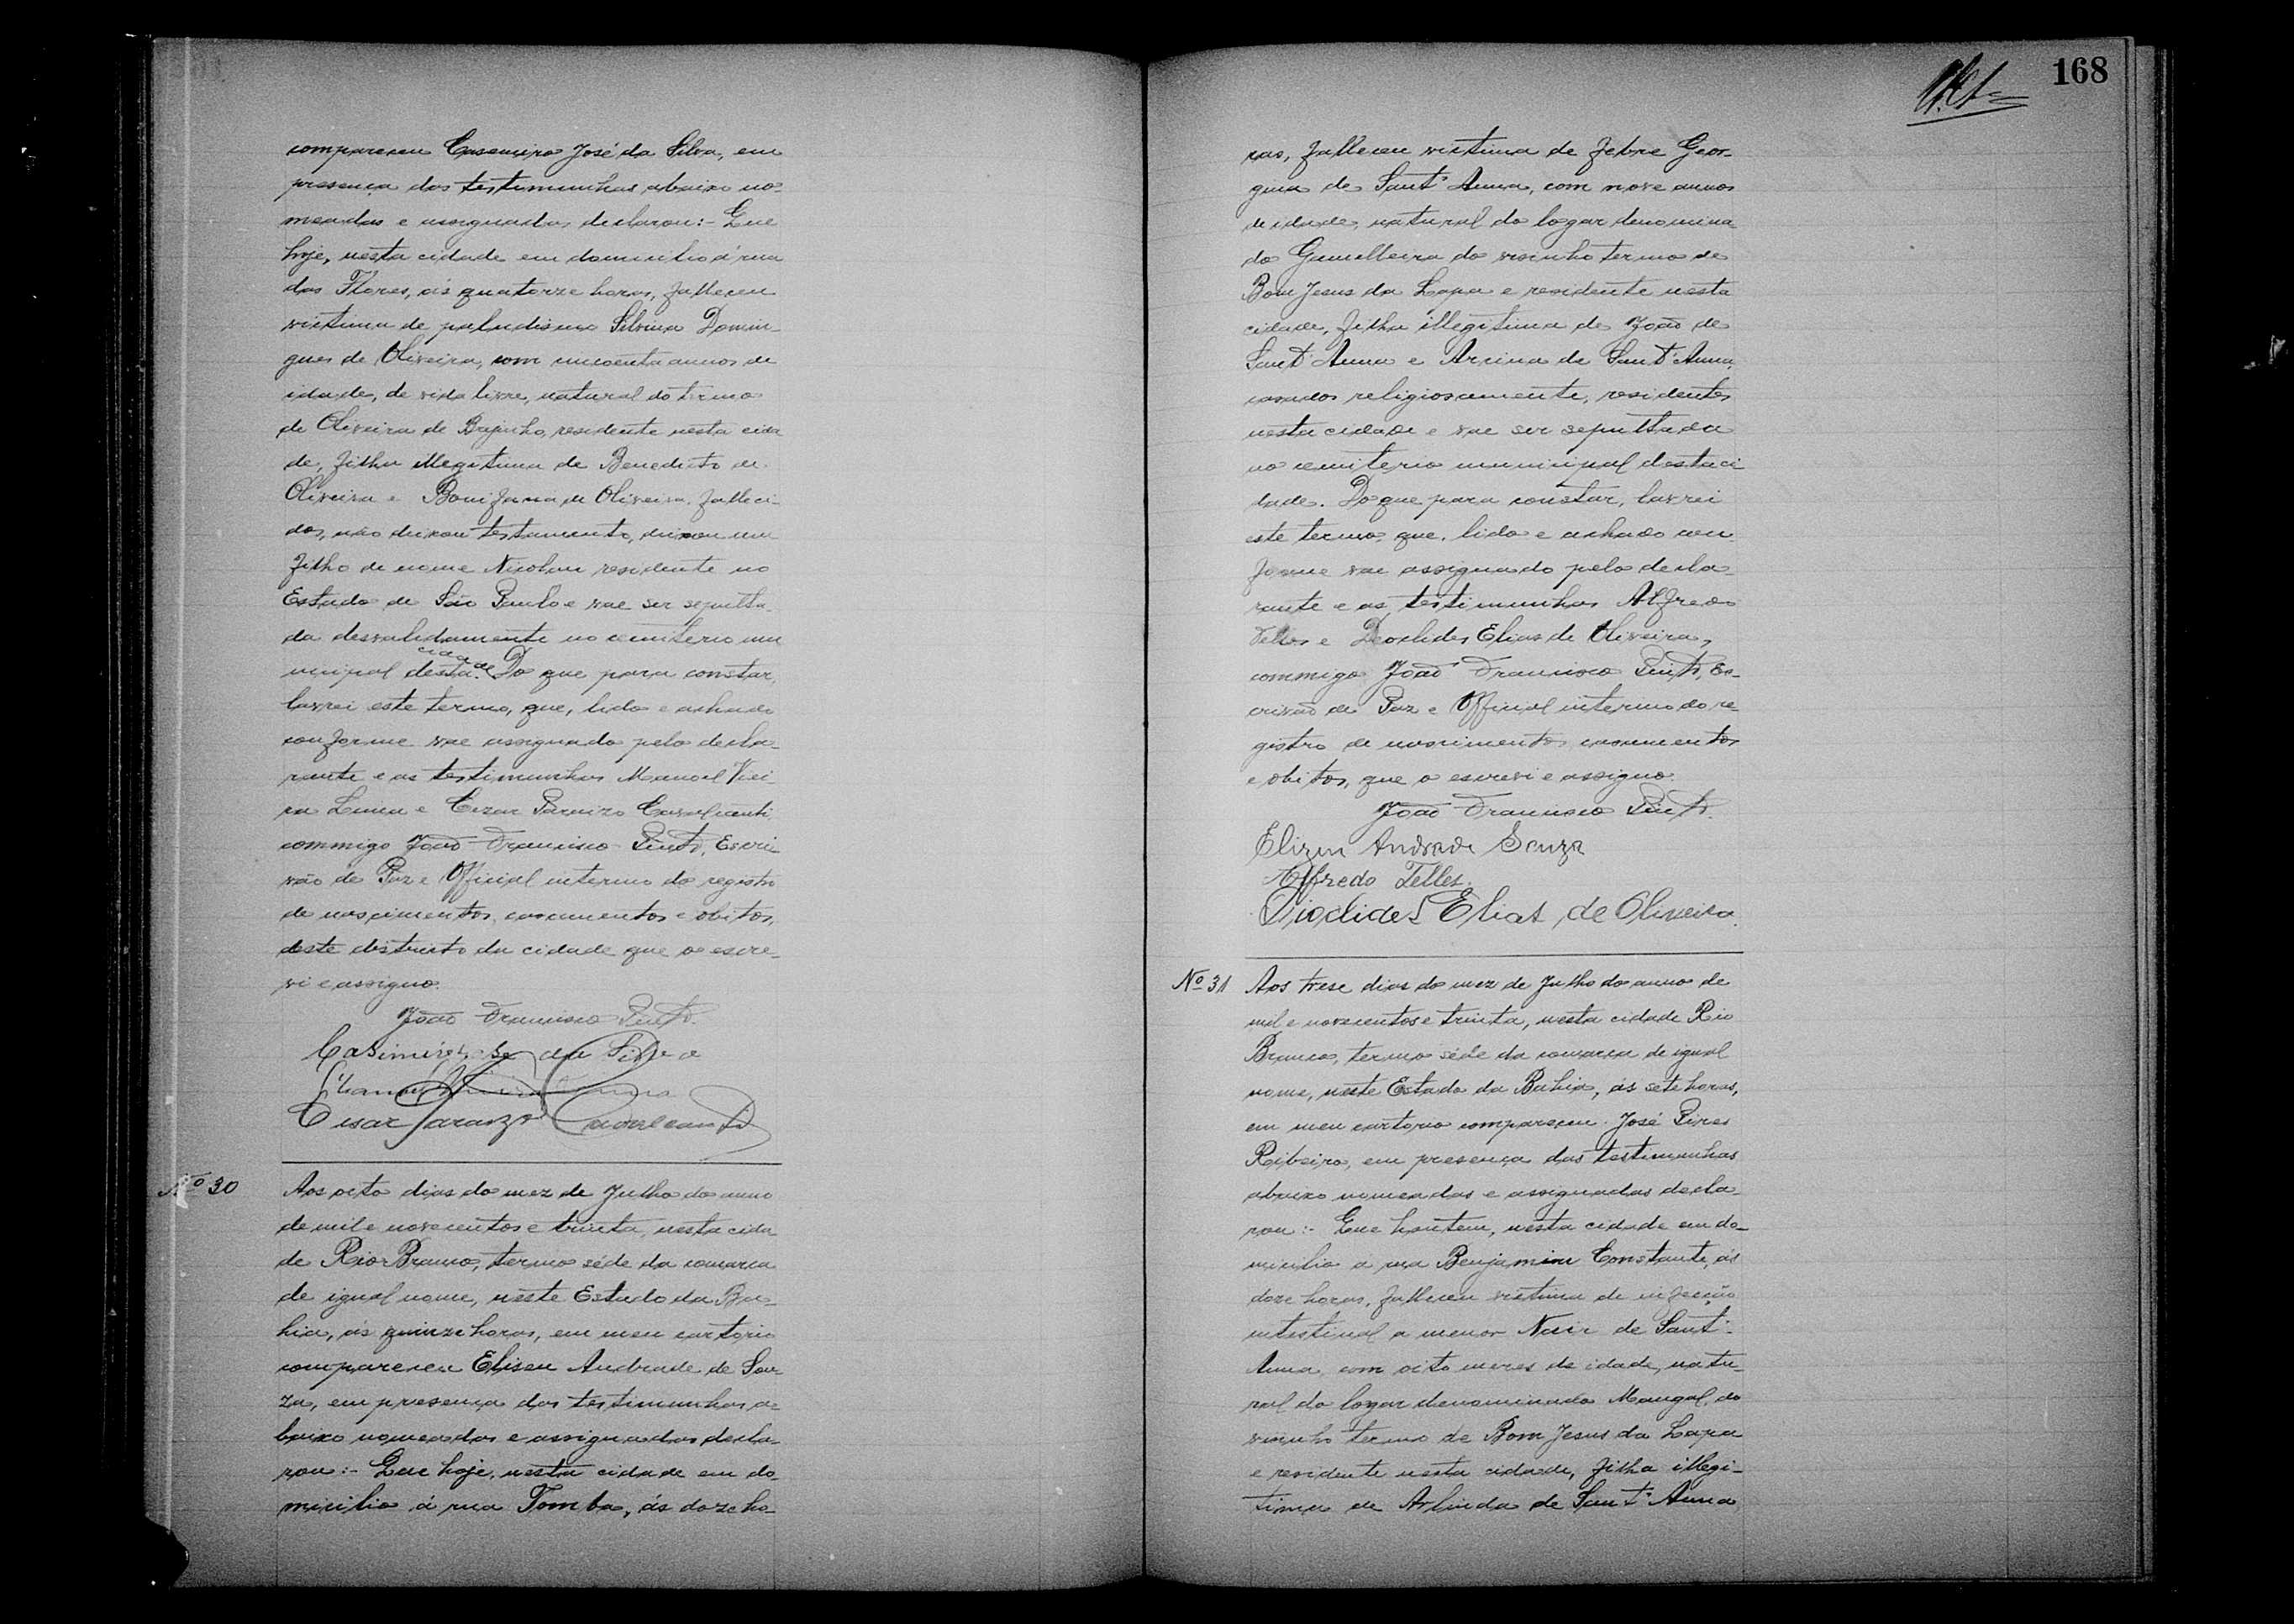 compareceu Casemiro José da Silva, em
presença das testimunhas abaixo no-
meadas e assignadas declarou:- Que
hoje, nesta cidade em domicilio á rua
das Flores, ás quatorze horas, falleceu
victima de paludismo Silvina Domin-
gues de Oliveira, com cincoenta annos de
idade, de vida livre, natural do termo
de Oliveira de Brejinho, residente nesta cida
de, filha illegitima de Benedicto de
Oliveira e Bonifacia de Oliveira, falleci-
dos, não deixou testamento, deixou um
filho de nome Nicolau residente no
Estado de São Paulo e vae ser sepulta-
da desvalidamente no cemiterio mu
nicipal desta cidade. Do que para constar,
lavrei este termo, que, lido e achado
conforme vae assignado pelo decla-
rante e as testimunhas Manoel Viei
ra Lima e Cezar Paraizo Cavalcanti
commigo João Francisco Pinto, Escri
vão de Paz e Official interino do registro
de nascimentos, casamentos e obitos,
deste districto da cidade que o escre-
vi e assigno.
João Francisco Pinto.
Casimiro José da Silva
Manoel
Cesar Paraizo Cavalcanti
Nº 30 Aos oito dias do mez de Julho do anno
de mil e novecentos e trinta, nesta cida
de Rio Branco, termo séde da comarca
de igual nome, nêste Estado da Ba-
hia, ás quinze horas, em meu cartorio
compareceu Eliseu Andrade de Sou-
za, em presença das testimunhas a-
baixo nomeadas e assignadas decla-
rou:- Que hoje, nesta cidade em do-
micilio á rua Tomba, ás doze ho-
168
ras, falleceu victima de febre Geor-
gina de Sant'Anna, com nove annos
de idade, natural do logar denomina
do Gamelleira do visinho termo de
Bom Jesus da Lapa e residente nesta
cidade, filha illegitima de João de
Sant'Anna e Arcina de Sant'Anna,
casados religiosamente, residentes
nesta cidade e vae ser sepultada
no cemiterio municipal desta ci
dade. Do que para constar, lavrei
este termo, que, lido e achado con
forme vae assignado pelo decla-
rante e as testimunhas Alfredo
Telles e Deoclides Elias de Oliveira,
commigo João Francisco Pinto, Es-
crivão de Paz e Official interino do re
gistro de nascimentos, casamentos
e obitos, que o escrevi e assigno.
João Francisco Pinto.
Elizeu Andrade Souza
Alfredo Telles.
Dioclides Elias de Oliveira.
Nº 31 Aos trese dias do mez de Julho do anno de
mil e novecentos e trinta, nesta cidade Rio
Branco, termo séde da comarca de igual
nome, nêste Estado da Bahia, ás sete horas,
em meu cartorio compareceu José Pires
Ribeiro, em presença das testimunhas
abaixo nomeadas e assignadas decla-
rou:- Que hontem, nesta cidade em do-
micilio a rua Benjamim Constante, ás
doze horas, falleceu victima de infecção
intestinal a menor Nair de Sant'-
Anna, com oito mezes de idade, natu-
ral do logar denominado Mangal, do
visinho termo de Bom Jesus da Lapa
e residente nesta cidade, filha illegi-
tima de Arlinda de Sant'Anna